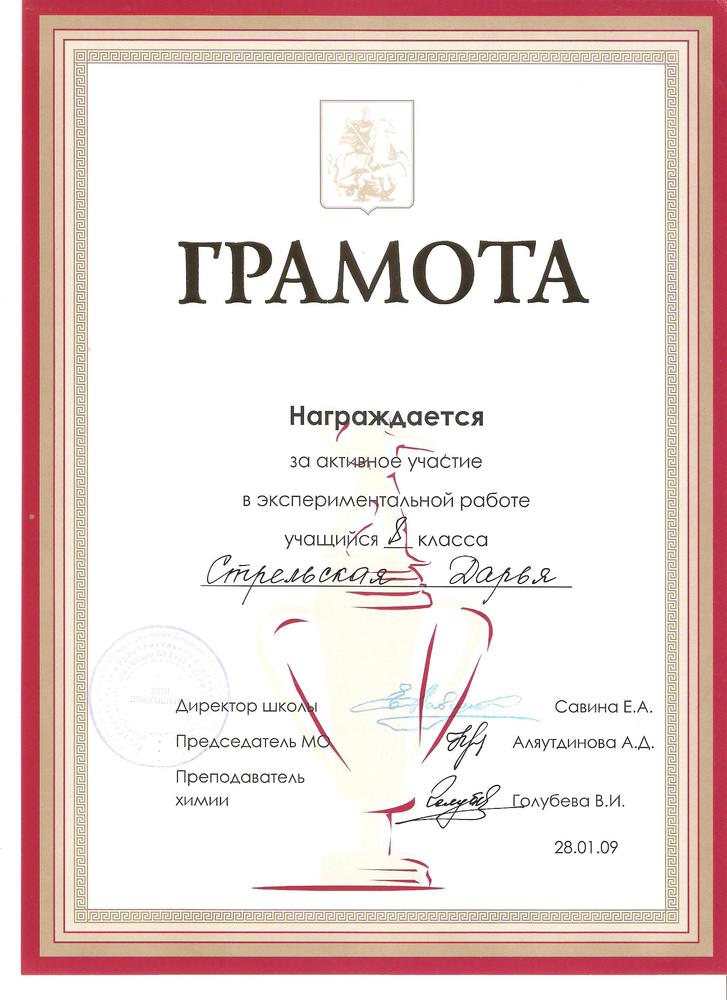 ГРАМОТА
Награждается
за активное участие
в экспериментальной работе
учащийся 8 класса
Стрельская Дарья
ДЛЯ
ДОКУМЕНТОВ
Директор школы Савина Е.А.
Председатель МО Аляутдинова А.Д.
Преподаватель
химии Голубева В.И.
28.01.09